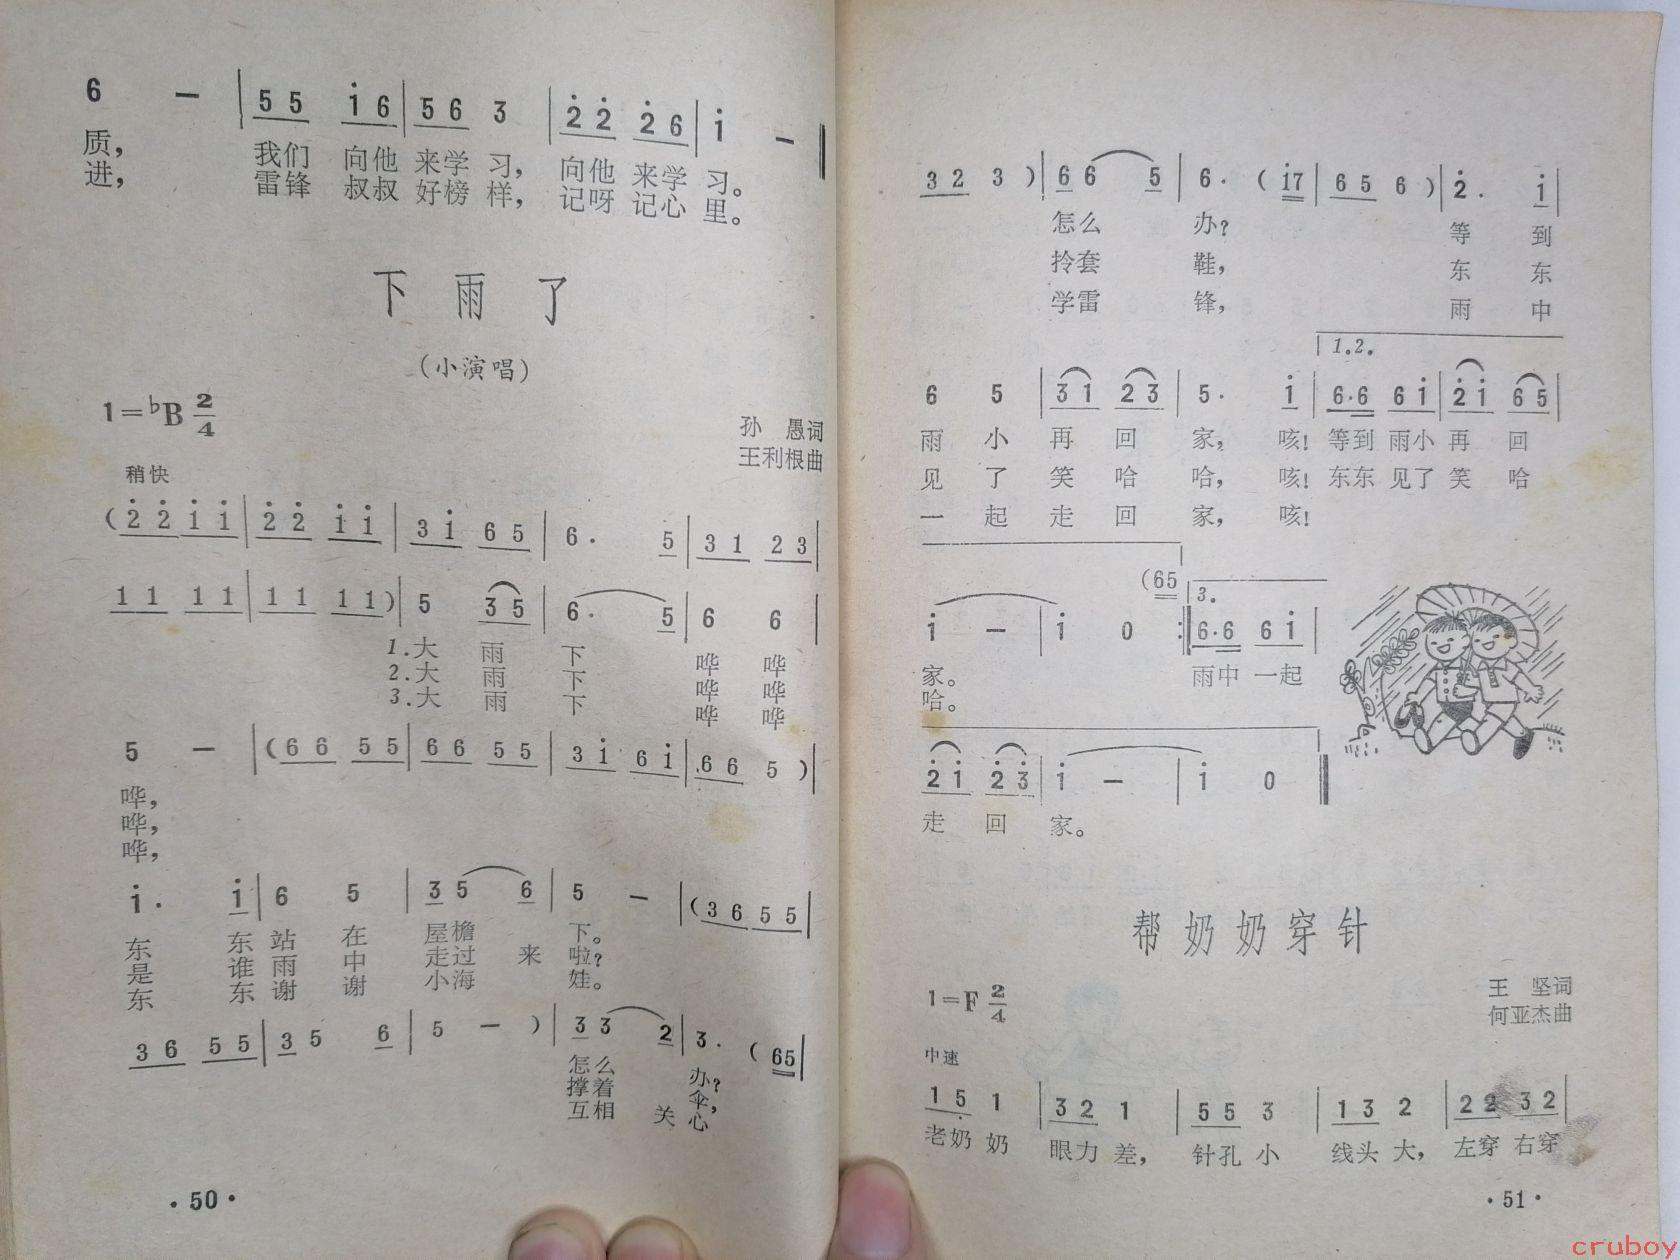 6 — | 5 5 i 6 | 5 6 3 | 2̇ 2̇ 2̇ 6 | i — ‖
质， 我们 向他 来学 习， 向他 来学 习。
进， 雷锋 叔叔 好榜 样， 记呀 记心 里。
下雨了
(小演唱)
1=♭B 2/4
孙 愚词
王利根曲
稍快
( 2̇ 2̇ i i | 2̇ 2̇ i i | 3 i 6 5 | 6 · 5 | 3 1 2 3 |
1 1 1 1 | 1 1 1 1 ) | 5 3 5 | 6 · 5 | 6 6 |
1.大 雨 下 哗 哗
2.大 雨 下 哗 哗
3.大 雨 下 哗 哗
5 — | ( 6 6 5 5 | 6 6 5 5 | 3 i 6 i | 6 6 5 ) |
哗，
哗，
哗，
i · i | 6 5 | 3 5 6 | 5 — | ( 3 6 5 5 |
东 东 站 在 屋檐 下。
是 谁 雨 中 走过 来 啦？
东 东 谢 谢 小海 娃。
3 6 5 5 | 3 5 6 | 5 — ) | 3 3 2 | 3 · ( 65 |
怎么 办？
撑着 伞，
互相 关 心
· 50 ·
3 2 3 ) | 6 6 5 | 6 · ( i7 | 6 5 6 ) | 2̇ · i |
怎么 办？ 等 到
拎套 鞋， 东 东
学雷 锋， 雨 中
1.2.
6 5 | 3 1 2 3 | 5 · i | 6·6 6 i | 2̇ i 6 5 |
雨 小 再 回 家， 咳！ 等到 雨小 再 回
见 了 笑 哈 哈， 咳！ 东东 见了 笑 哈
一 起 走 回 家， 咳！
(65
3.
i — | i 0 :‖ 6·6 6 i |
家。 雨中 一起
哈。
2̇ i 2̇ 3̇ | i — | i 0 ‖
走 回 家。
帮奶奶穿针
1=F 2/4
王 坚词
何亚杰曲
中速
1 5̣ 1 | 3 2 1 | 5 5 3 | 1 3 2 | 2 2 3 2 |
老奶 奶 眼力 差， 针孔 小 线头 大， 左穿 右穿
· 51 ·
cruboy